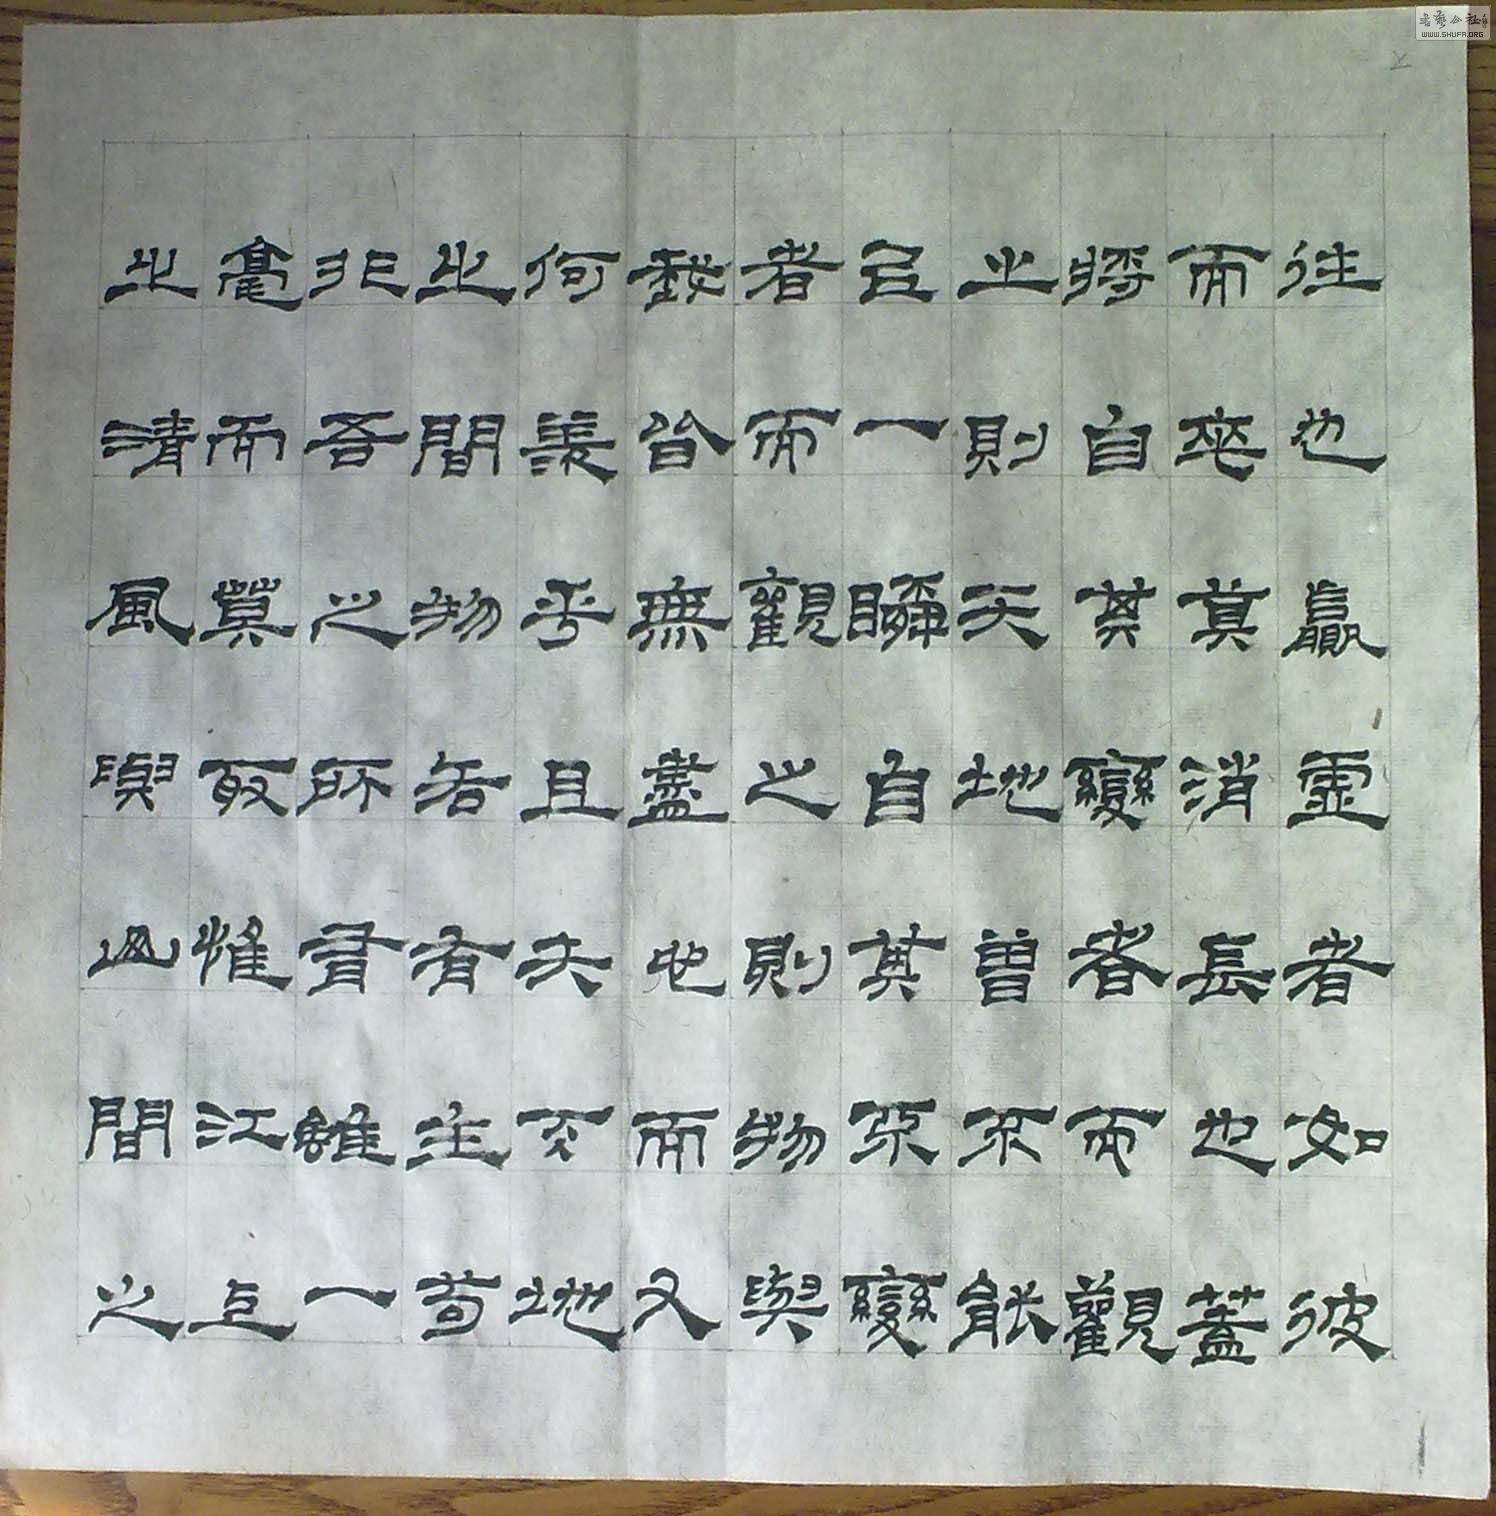 往也贏虛者如彼
而卒莫消長也蓋
將自其變者而觀
之則天地曾不能
以一瞬自其不變
者而觀之則物與
我皆無盡也而又
何羨乎且夫天地
之間物各有主苟
非吾之所有雖一
毫而莫取惟江上
之清風與山間之
书艺公社
WWW.SHUFA.ORG